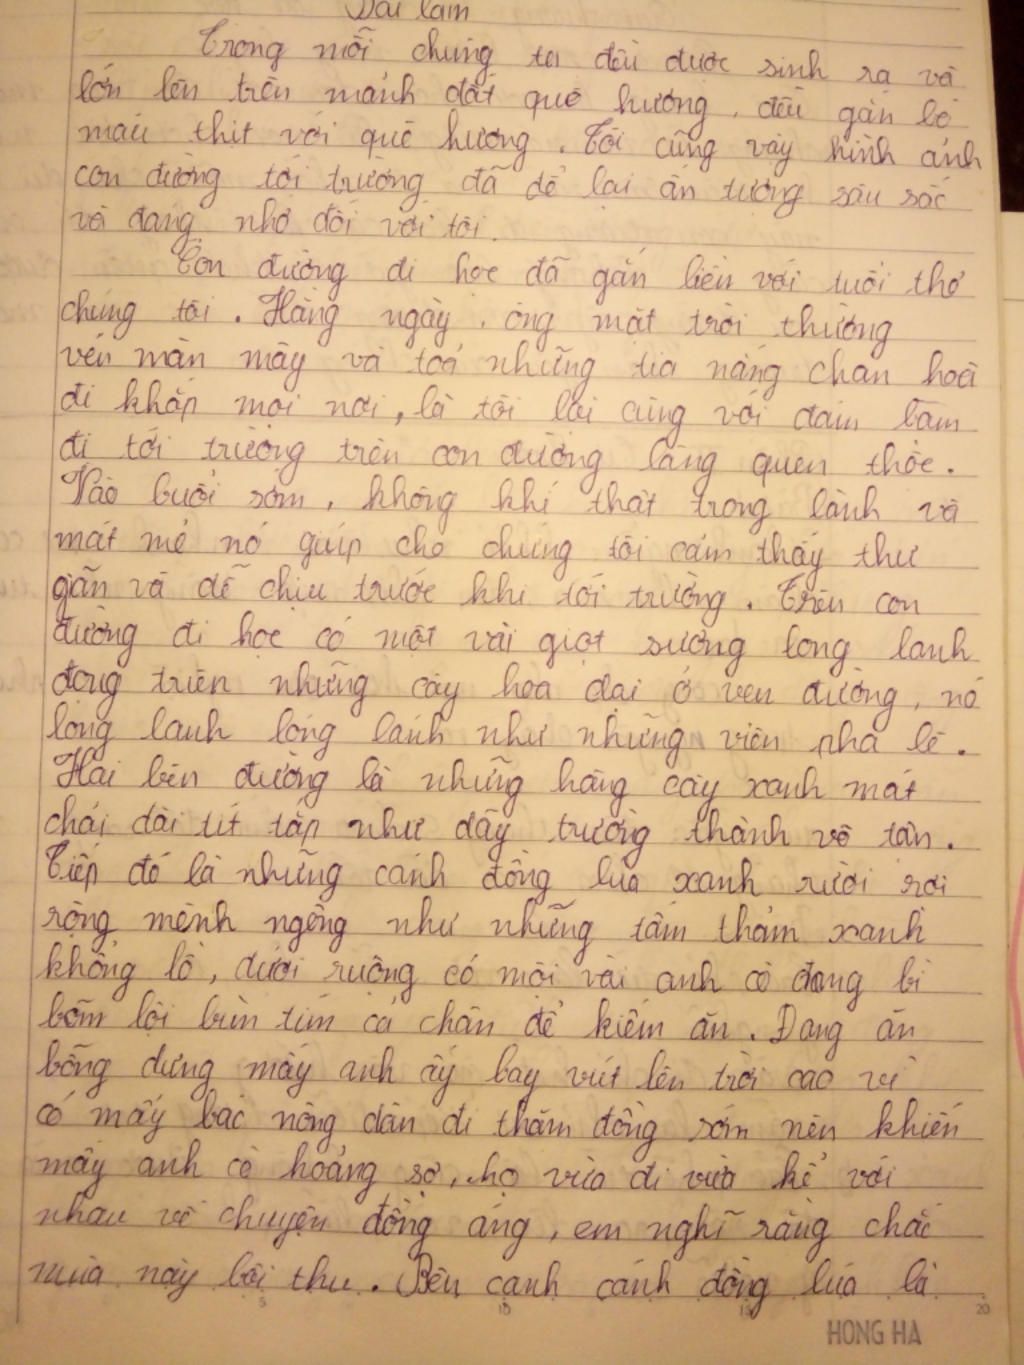 Bài làm
Trong mỗi chúng ta đều được sinh ra và
lớn lên trên mảnh đất quê hương, đều gắn bó
máu thịt với quê hương. Tôi cũng vậy hình ảnh
con đường tới trường đã để lại ấn tượng sâu sắc
và đáng nhớ đối với tôi.
Con đường đi học đã gắn liền với tuổi thơ
chúng tôi. Hàng ngày, ông mặt trời thường
vén màn mây và toả những tia nắng chan hoà
đi khắp mọi nơi, là tôi lại cùng với đám bạn
đi tới trường trên con đường làng quen thộc.
Vào buổi sớm, không khí thật trong lành và
mát mẻ nó giúp cho chúng tôi cảm thấy thư
giãn và dễ chịu trước khi tới trường. Trên con
đường đi học có một vài giọt sương long lanh
đọng trên những cây hoa dại ở ven đường, nó
long lanh lóng lánh như những viên pha lê.
Hai bên đường là những hàng cây xanh mát
chải dài tít tắp như dãy trường thành vô tận.
Tiếp đó là những cánh đồng lúa xanh rười rợi
rộng mênh ngông như những tấm thảm xanh
khổng lồ, dưới ruộng có một vài anh cò đang bì
bõm lội bùn tím cả chân để kiếm ăn. Đang ăn
bỗng dưng mấy anh ấy bay vút lên trời cao vì
có mấy bác nông dân đi thăm đồng sớm nên khiến
mấy anh cò hoảng sợ, họ vừa đi vừa kể với
nhau về chuyện đồng áng, em nghĩ rằng chắc
mùa này bội thu. Bên cạnh cánh đồng lúa là
5 10 15 20
HONG HA